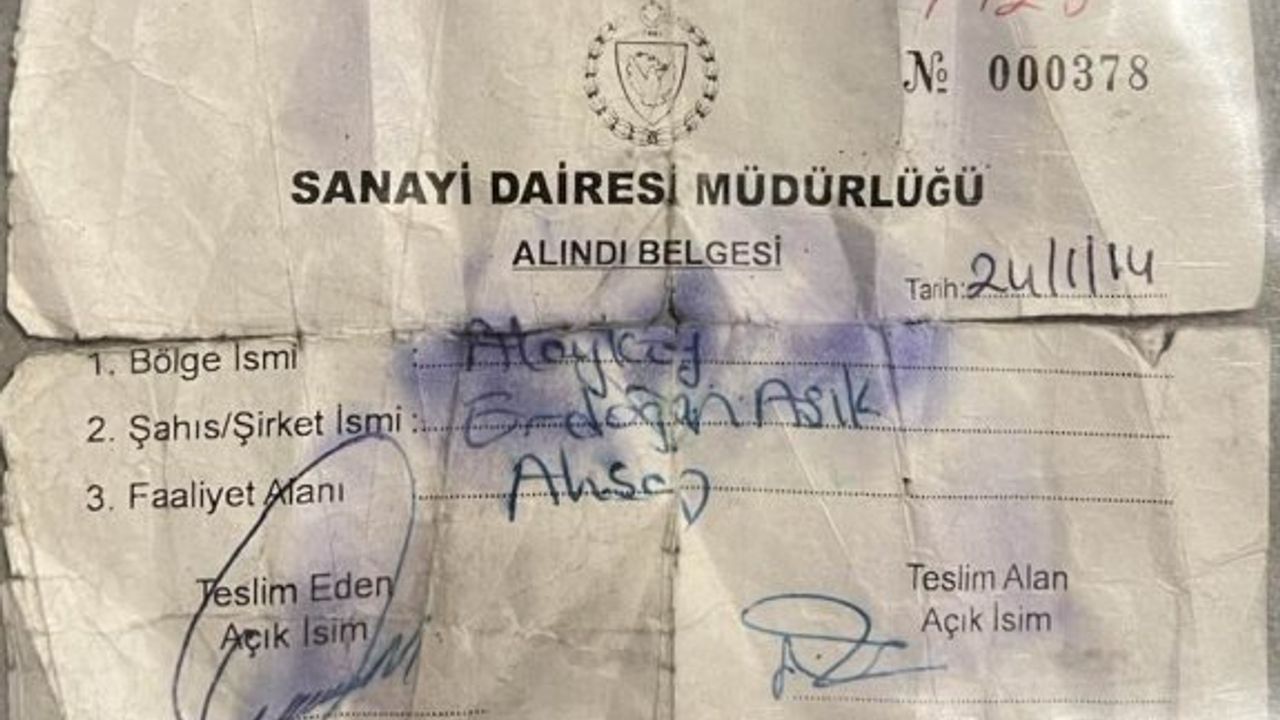 № 000378
SANAYİ DAİRESİ MÜDÜRLÜĞÜ
ALINDI BELGESİ
Tarih: 24/1/14
1. Bölge İsmi : Alayköy
2. Şahıs/Şirket İsmi : Erdoğan Aşık
3. Faaliyet Alanı : Ahşap
Teslim Eden
Açık İsim
Teslim Alan
Açık İsim